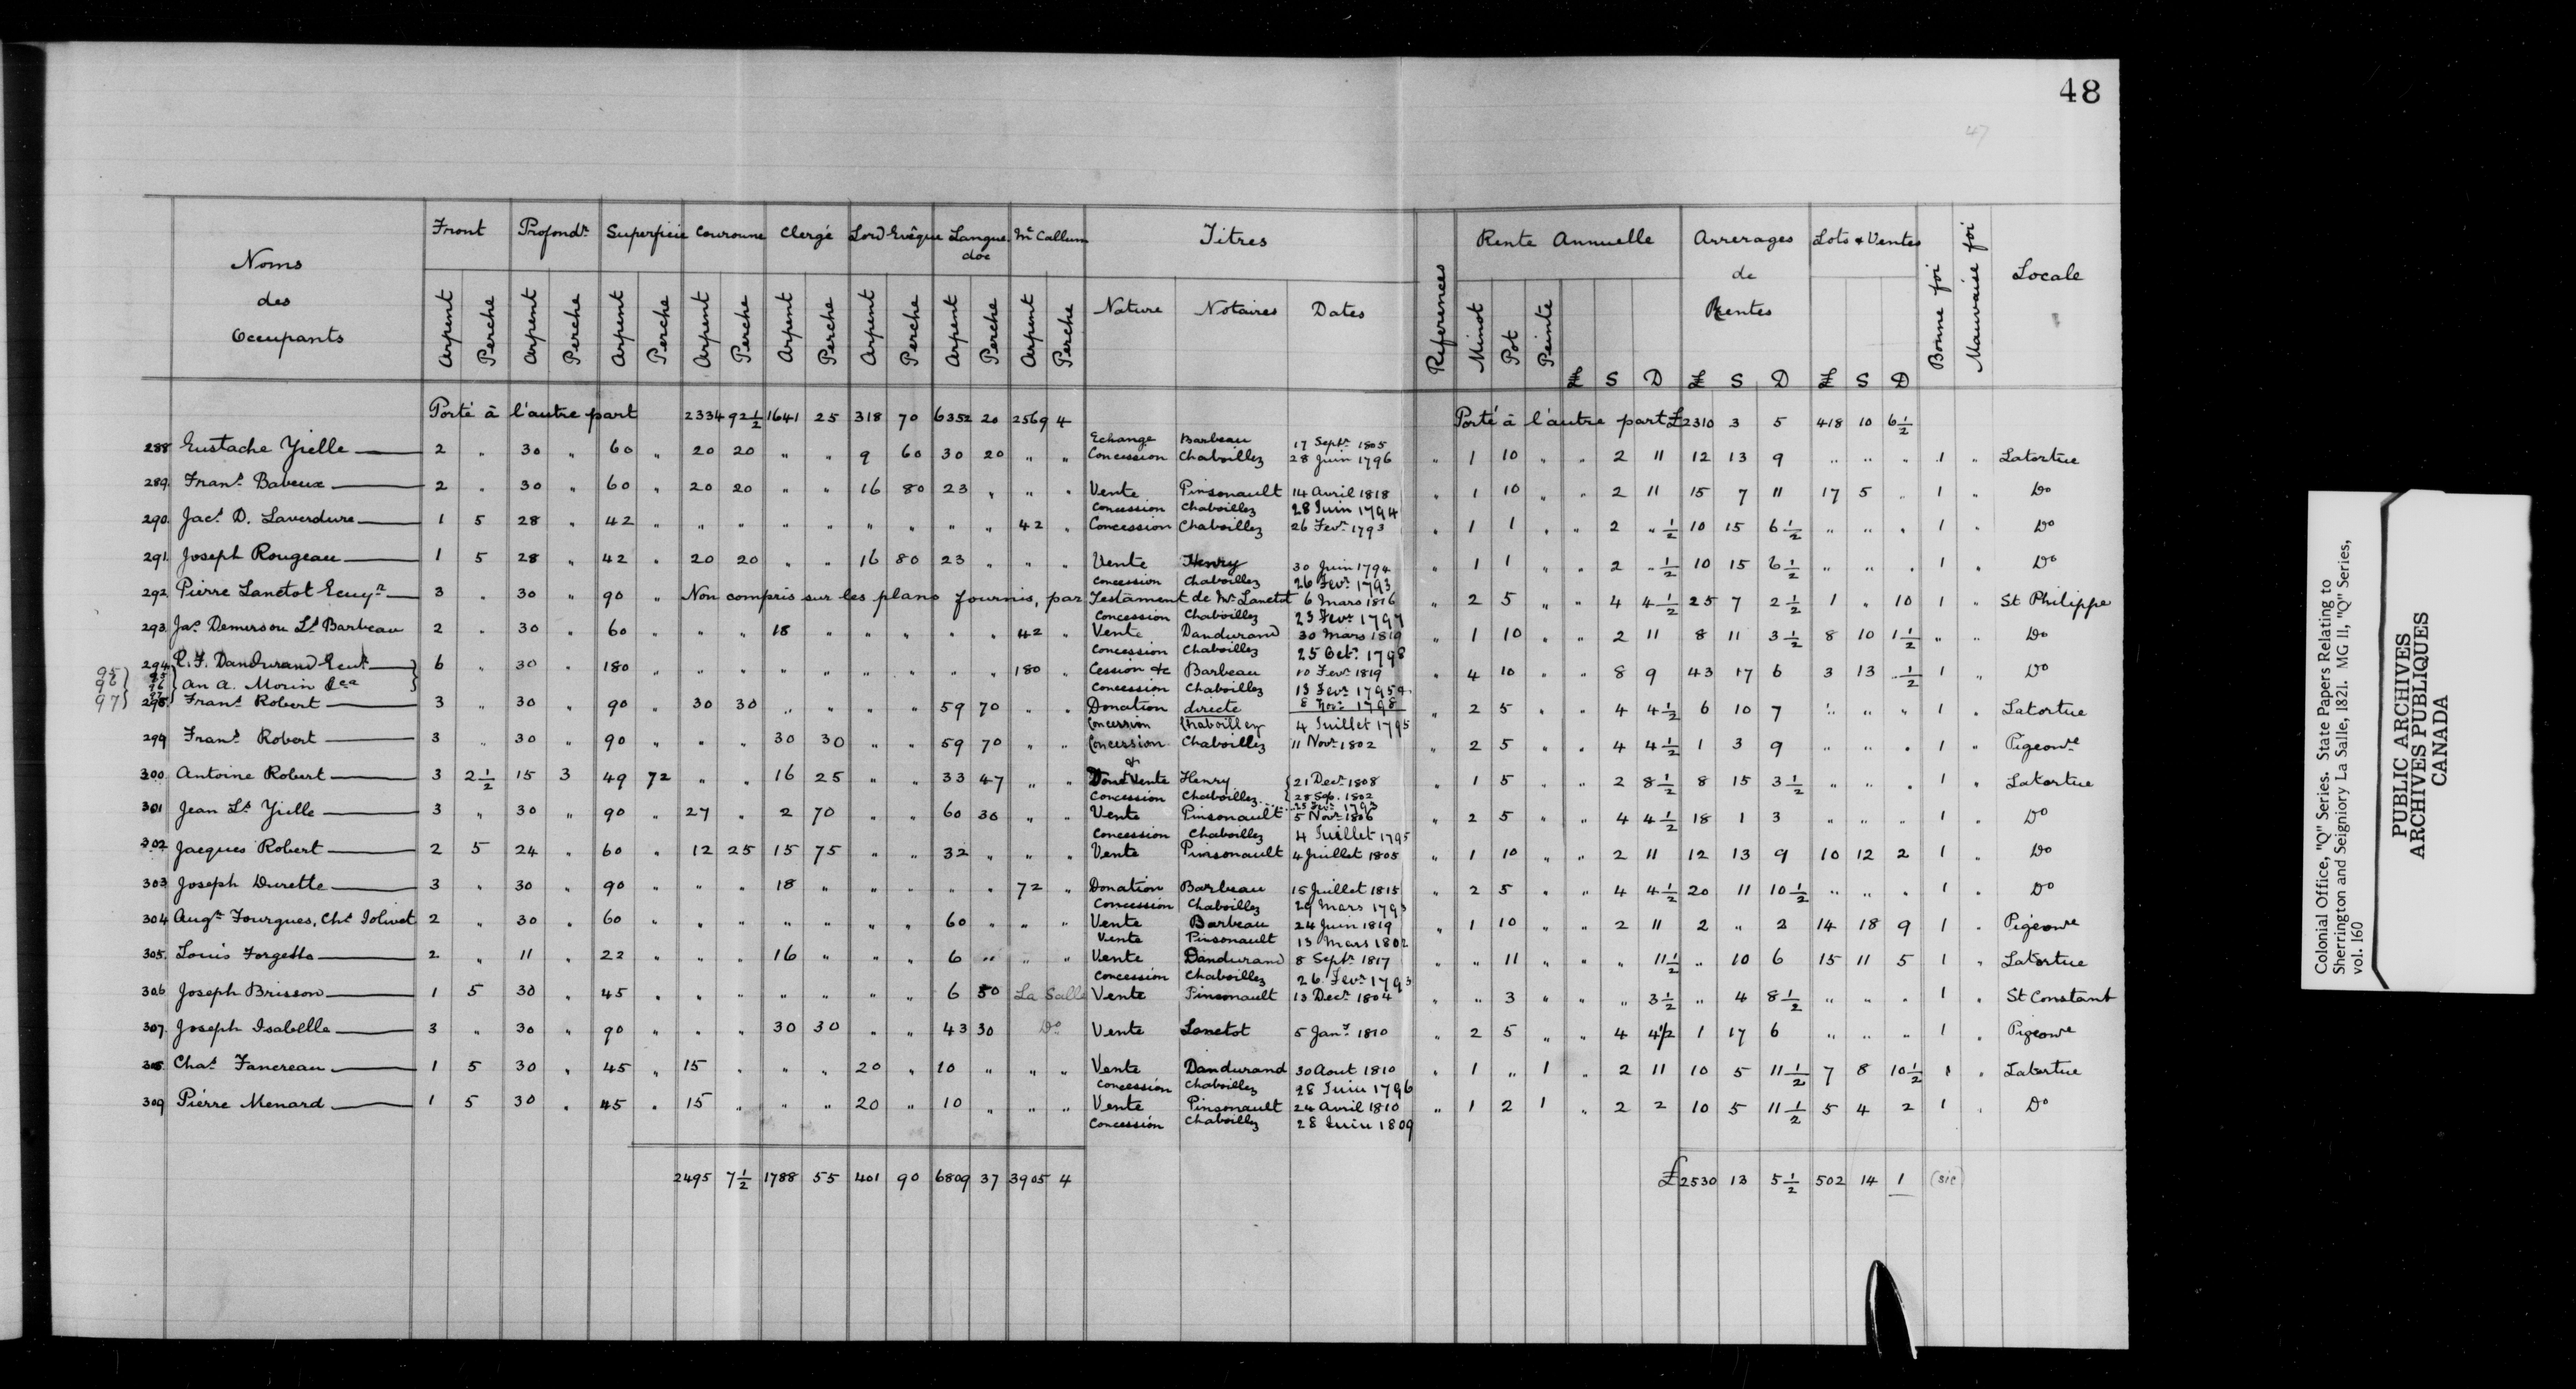 48
47
Noms des Occupants | Front | Profondr | Superficie | Couronne | Clergé | Lord Evêque | Langue doc | Mc Callum | Titres | References | Rente Annuelle | Arrerages de Rentes | Lots & Ventes | Bonne foi | Mauvaise foi | Locale
Arpent Perche Arpent Perche Arpent Perche Arpent Perche Arpent Perche Arpent Perche Arpent Perche Arpent Perche | Nature | Notaires | Dates | Minot Pot Peinte £ S D £ S D £ S D
Porté à l'autre part 2334 92½ 1641 25 318 70 6352 20 2569 4 Porté à l'autre part £2310 3 5 418 10 6½
Echange Barbeau 17 Septr 1805
288 Eustache Yielle 2 " 30 " 60 " 20 20 " " 9 60 30 20 " " Concession Chaboillez 28 Juin 1796 " 1 10 " " 2 11 12 13 9 " " " 1 " Latortue
289. Frans Babeux 2 " 30 " 60 " 20 20 " " 16 80 23 " " " Vente Pinsonault 14 Avril 1818 " 1 10 " " 2 11 15 7 11 17 5 " 1 " Do
Concession Chaboillez 28 Juin 1794
290. Jacs D. Laverdure 1 5 28 " 42 " " " " " " " " " 42 " Concession Chaboillez 26 Fevr 1793 " 1 1 " " 2 " ½ 10 15 6½ " " " 1 " Do
291. Joseph Rougeau 1 5 28 " 42 " 20 20 " " 16 80 23 " " " Vente Henry 30 Juin 1794 " 1 1 " " 2 " ½ 10 15 6½ " " " 1 " Do
Concession Chaboillez 26 Fevr 1793
292. Pierre Lanctot Ecuyr 3 " 30 " 90 " Non compris sur les plans fournis, par Testament de Mr Lanctot 6 Mars 1816 " 2 5 " " 4 4½ 25 7 2½ 1 " 10 1 " St Philippe
Concession Chaboillez 23 Fevr 1797
293. Jas Demerson Ls Barbeau 2 " 30 " 60 " " " 18 " " " " " 42 " Vente Dandurand 30 Mars 1819 " 1 10 " " 2 11 8 11 3½ 8 10 1½ " " Do
Concession Chaboillez 25 Octr 1798
294. R. F. Dandurand Ecur 6 " 30 " 180 " " " " " " " " " 180 " Cession &c Barbeau 10 Fevr 1819 " 4 10 " " 8 9 43 17 6 3 13 " ½ 1 " Do
95 96 97 95 96 97 an A. Morin &ca Concession Chaboillez 13 Fevr 1795
298. Frans Robert 3 " 30 " 90 " 30 30 " " " " 59 70 " " Donation directe 8 Novr 1798 " 2 5 " " 4 4½ 6 10 7 " " " 1 " Latortue
Concession Chaboillez 4 Juillet 1795
299 Frans Robert 3 " 30 " 90 " " " 30 30 " " 59 70 " " Concession Chaboillez 11 Novr 1802 " 2 5 " " 4 4½ 1 3 9 " " " 1 " Pigeonre
300 Antoine Robert 3 2½ 15 3 49 72 " " 16 25 " " 33 47 " " Dont & Vente Henry 21 Decr 1808 " 1 5 " " 2 8½ 8 15 3½ " " " 1 " Latortue
Concession Chaboillez 28 Sep. 1802
25 Fevr 1793
301 Jean Ls Yielle 3 " 30 " 90 " 27 " 2 70 " " 60 30 " " Vente Pinsonault 5 Novr 1806 " 2 5 " " 4 4½ 18 1 3 " " " 1 " Do
Concession Chaboillez 4 Juillet 1795
302 Jacques Robert 2 5 24 " 60 " 12 25 15 75 " " 32 " " " Vente Pinsonault 4 Juillet 1805 " 1 10 " " 2 11 12 13 9 10 12 2 1 " Do
303 Joseph Durette 3 " 30 " 90 " " " 18 " " " " " 72 " Donation Barbeau 15 Juillet 1815 " 2 5 " " 4 4½ 20 11 10½ " " " 1 " Do
Concession Chaboillez 29 Mars 1793
304 Augn Fourgues, Chs Jolivet 2 " 30 " 60 " " " " " " " 60 " " " Vente Barbeau 24 Juin 1819 " 1 10 " " 2 11 2 " 2 14 18 9 1 " Pigeonre
Vente Pinsonault 13 Mars 1802
305. Louis Forgette 2 " 11 " 22 " " " 16 " " " 6 " " " Vente Dandurand 8 Septr 1817 " " 11 " " " 11½ " 10 6 15 11 5 1 " Latortue
Concession Chaboillez 26 Fevr 1793
306 Joseph Brisson 1 5 30 " 45 " " " " " " " 6 50 La Salle Vente Pinsonault 13 Decr 1804 " " 3 " " " 3½ " 4 8½ " " " 1 " St Constant
307. Joseph Isabelle 3 " 30 " 90 " " " 30 30 " " 43 30 Do Vente Lanctot 5 Janr 1810 " 2 5 " " 4 4½ 1 17 6 " " " 1 " Pigeonre
308. Chas Fancreau 1 5 30 " 45 " 15 " " " 20 " 10 " " " Vente Dandurand 30 Aout 1810 " 1 " 1 " 2 11 10 5 11½ 7 8 10½ 1 " Latortue
Concession Chaboillez 28 Juin 1796
309 Pierre Menard 1 5 30 " 45 " 15 " " " 20 " 10 " " " Vente Pinsonault 24 Avril 1810 " 1 2 1 " 2 2 10 5 11½ 5 4 2 1 " Do
Concession Chaboillez 28 Juin 1809
2495 7½ 1788 55 401 90 6809 37 3905 4 £2530 13 5½ 502 14 1 (sic)
Colonial Office, "Q" Series. State Papers Relating to
Sherrington and Seigniory La Salle, 1821. MG 11, "Q" Series,
vol. 160
PUBLIC ARCHIVES
ARCHIVES PUBLIQUES
CANADA